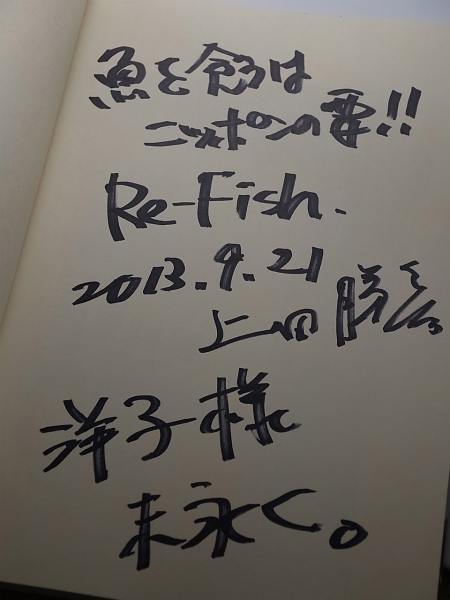 魚を食うは
ニッポンの要!!
Re-Fish.
2013.9.21
上田勝彦
洋子様
末永く。